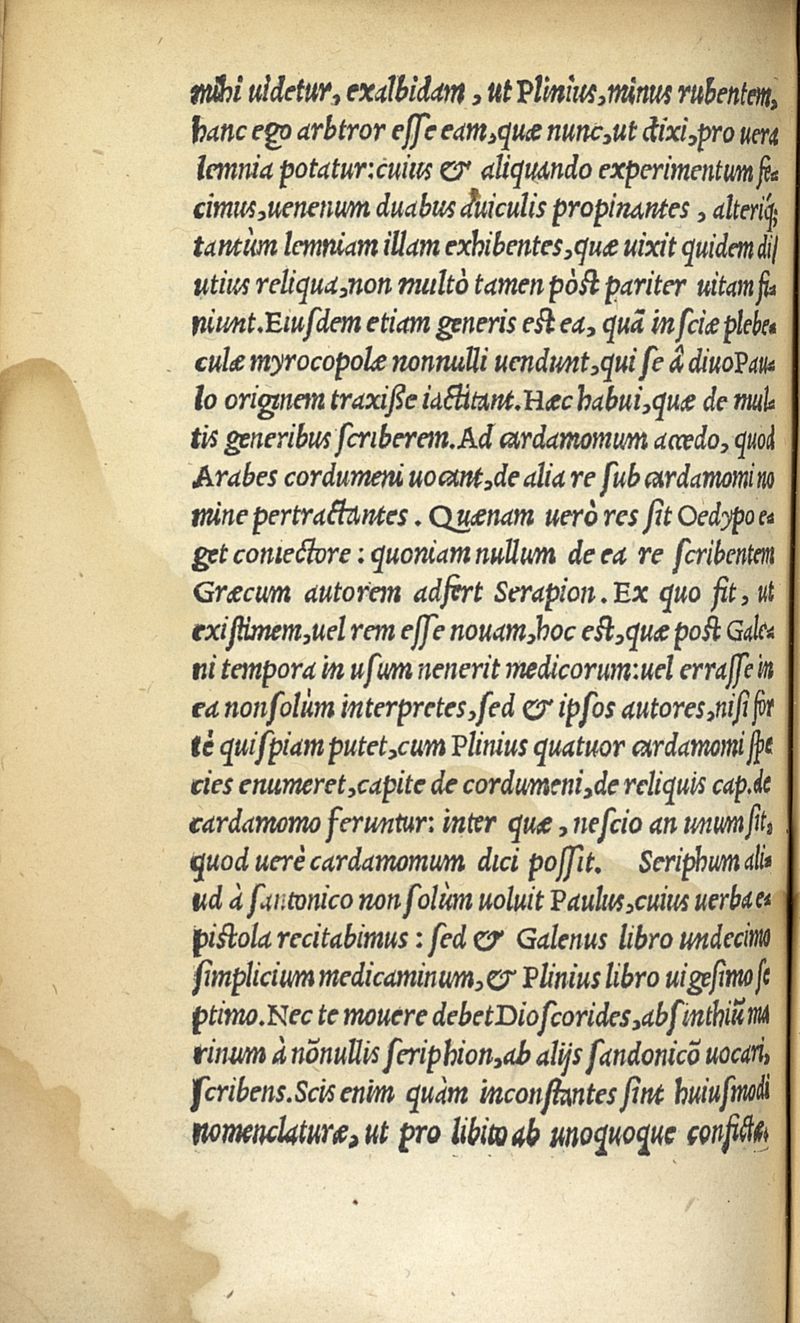 mihi uidetur, exalbidam, ut Plinius, minus rubentem,
hanc ego arbtror esse eam, quæ nunc, ut dixi, pro uera
lemnia potatur: cuius & aliquando experimentum fe=
cimus, uenenum duabus auiculis propinantes, alteriq́;
tantùm lemniam illam exhibentes, quæ uixit quidem di/
utius reliqua, non multò tamen pòst pariter uitam fi=
niunt. Eiusdem etiam generis est ea, quã insciæ plebe=
culæ myrocopolæ nonnulli uendunt, qui se â diuo Pau=
lo originem traxiße iactitant. Hæc habui, quæ de mul=
tis generibus scriberem. Ad cardamomum accedo, quod
Arabes cordumeni uocant, de alia re sub cardamomi no
mine pertractantes. Quænam uerò res sit Oedypo e=
get coniectore: quoniam nullum de ea re scribentem
Græcum autorem adfert Serapion. Ex quo fit, ut
existimem, uel rem esse nouam, hoc est, quæ post Gale=
ni tempora in usum nenerit medicorum: uel errasse in
ea non solùm interpretes, sed & ipsos autores, nisi for
tè quispiam putet, cum Plinius quatuor cardamomi spe
cies enumeret, capite de cordumeni, de reliquis cap. de
cardamomo feruntur: inter quæ, nescio an unum sit,
quod uerè cardamomum dici possit. Seriphum ali=
ud à santonico non solùm uoluit Paulus, cuius uerba e=
pistola recitabimus: sed & Galenus libro undecimo
simplicium medicaminum, & Plinius libro uigesimo se
ptimo. Nec te mouere debet Dioscorides, absinthiũ ma
rinum à nõnullis seriphion, ab alijs sandonicõ uocari,
scribens. Scis enim quàm inconstantes sint huiusmodi
nomenclaturæ, ut pro libito ab unoquoque confictæ,